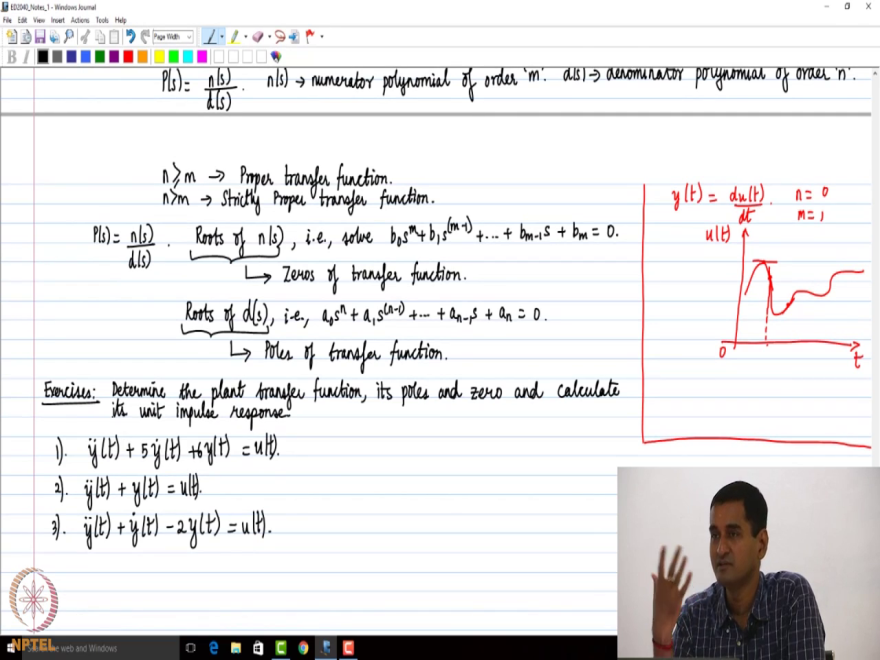 ED2040_Notes_1 - Windows Journal
File Edit View Insert Actions Tools Help
Page Width
B I
P(s) = n(s)/d(s). n(s) → numerator polynomial of order 'm'. d(s) → denominator polynomial of order 'n'.
n ≥ m → Proper transfer function.
n>m → Strictly Proper transfer function.
P(s) = n(s)/d(s). Roots of n(s), i.e., solve b₀sᵐ + b₁s⁽ᵐ⁻¹⁾ + ... + bₘ₋₁s + bₘ = 0.
↳ Zeros of transfer function.
Roots of d(s), i.e., a₀sⁿ + a₁s⁽ⁿ⁻¹⁾ + ... + aₙ₋₁s + aₙ = 0.
↳ Poles of transfer function.
Exercises: Determine the plant transfer function, its poles and zero and calculate
its unit impulse response.
1). ÿ(t) + 5ẏ(t) + 6y(t) = u(t).
2). ÿ(t) + y(t) = u(t).
3). ÿ(t) + ẏ(t) - 2y(t) = u(t).
y(t) = du(t)/dt. n = 0
m = 1
u(t)
0
t
NPTEL
the web and Windows